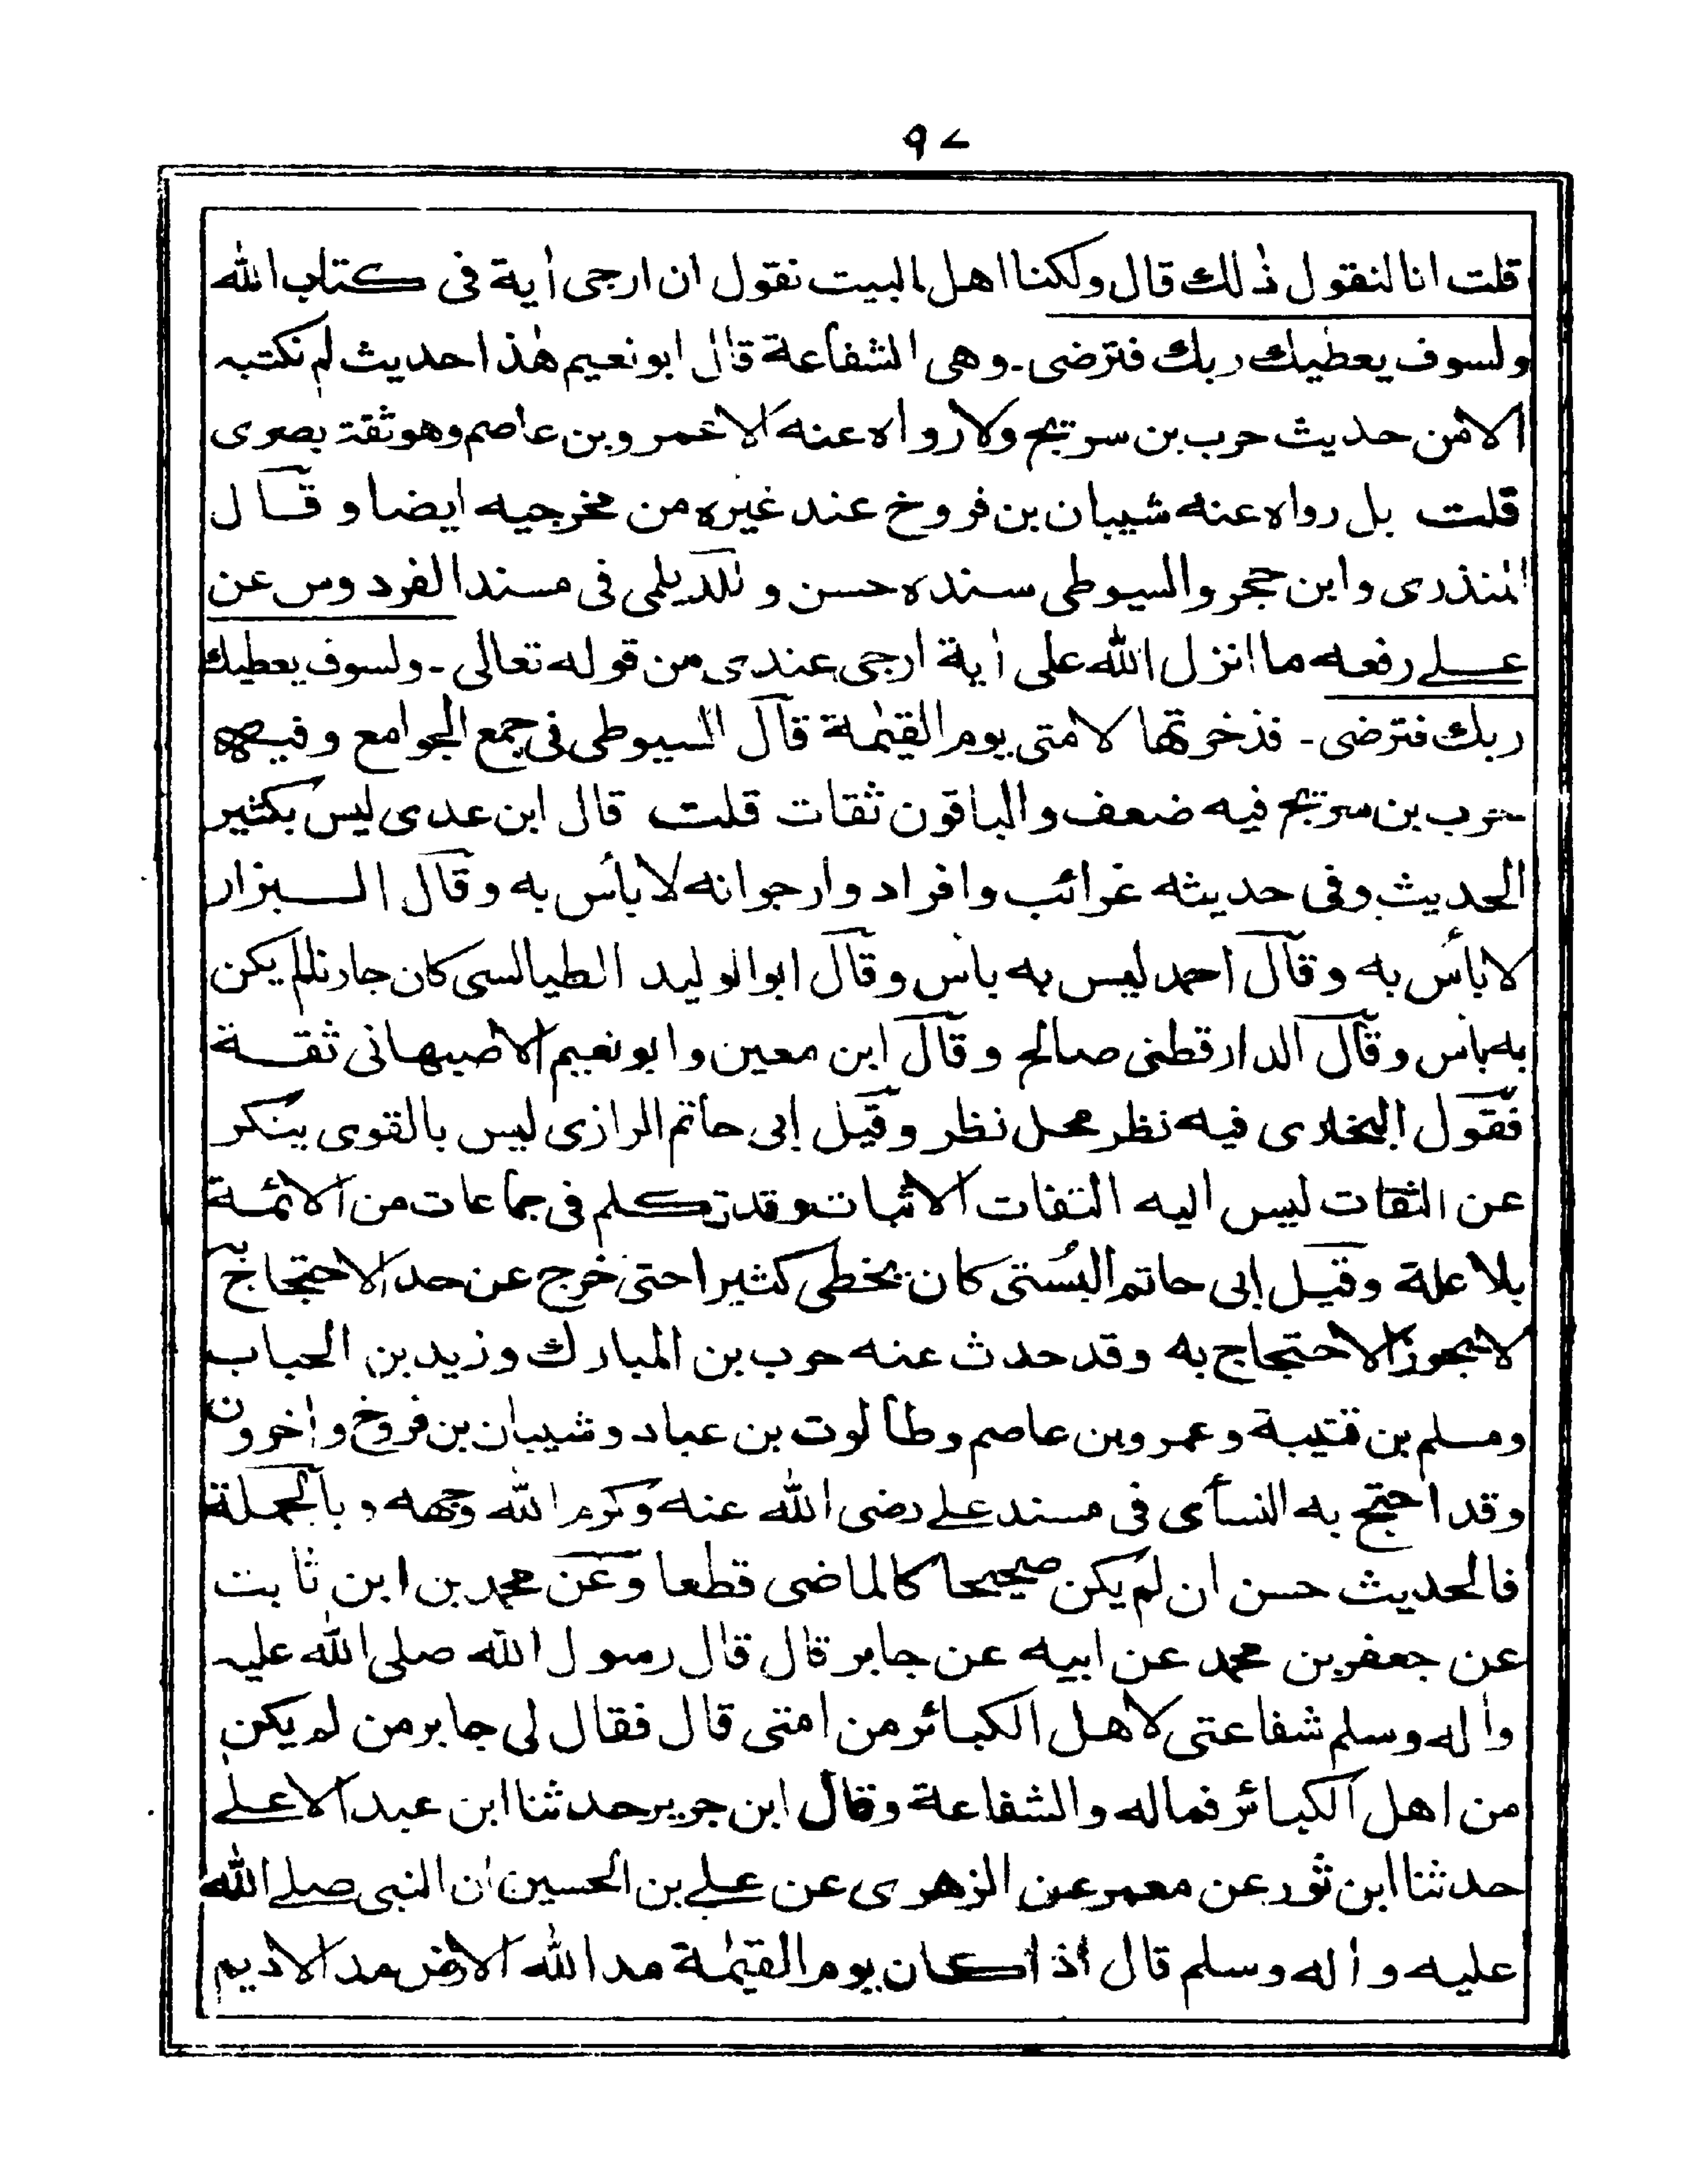 ٩٧
قلت انا لنقول ذٰلك قال ولكنا اهل البيت نقول ان ارجى اٰية فى كتاب الله
ولسوف يعطيك ربك فترضى۔ وهى الشفاعة قال ابو نعيم هٰذا حديث لم نكتبه
الا من حديث حرب بن سريج ولا رواه عنه الا عمرو بن عاصم وهو ثقة بصرى
قلت بل رواه عنه شيبان بن فروخ عند غيره من مخرجيه ايضا وقال
المنذرى وابن حجر والسيوطى سنده حسن وللديلمى فى مسند الفردوس عن
على رفعه ما انزل الله على اٰية ارجى عندى من قوله تعالى۔ ولسوف يعطيك
ربك فترضى۔ فذخرتها لامتى يوم القيٰمة قال السيوطى فى جمع الجوامع وفيه
حرب بن سريج فيه ضعف والباقون ثقات قلت قال ابن عدى ليس بكثير
الحديث وفى حديثه غرائب وافراد وارجو انه لا بأس به وقال البزار
لا بأس به وقال احمد ليس به بأس وقال ابو الوليد الطيالسى كان جارنا لم يكن
به بأس وقال الدارقطنى صالح وقال ابن معين وابو نعيم الاصبهانى ثقة
فقول البخارى فيه نظر محل نظر وقيل ابى حاتم الرازى ليس بالقوى ينكر
عن الثقات ليس اليه التفات الاثبات وقد تكلم فى جماعات من الائمة
بلا علة وقيل ابى حاتم البُستى كان يخطى كثيرا حتى خرج عن حد الاحتجاج به
لا يجوز الاحتجاج به وقد حدث عنه حرب بن المبارك وزيد بن الحباب
ومسلم بن قتيبة وعمرو بن عاصم وطالوت بن عباد وشيبان بن فروخ واٰخرون
وقد احتج به النسأى فى مسند على رضى الله عنه وكرم الله وجهه وبالجملة
فالحديث حسن ان لم يكن صحيحا كالماضى قطعا وعن محمد بن ابن ثابت
عن جعفر بن محمد عن ابيه عن جابر قال قال رسول الله صلى الله عليه
واٰله وسلم شفاعتى لاهل الكبائر من امتى قال فقال لى جابر من لم يكن
من اهل الكبائر فماله والشفاعة وقال ابن جرير حدثنا ابن عبد الاعلى
حدثنا ابن ثور عن معمر عن الزهرى عن على بن الحسين ان النبى صلى الله
عليه واٰله وسلم قال اذا كان يوم القيٰمة مد الله الارض مد الاديم